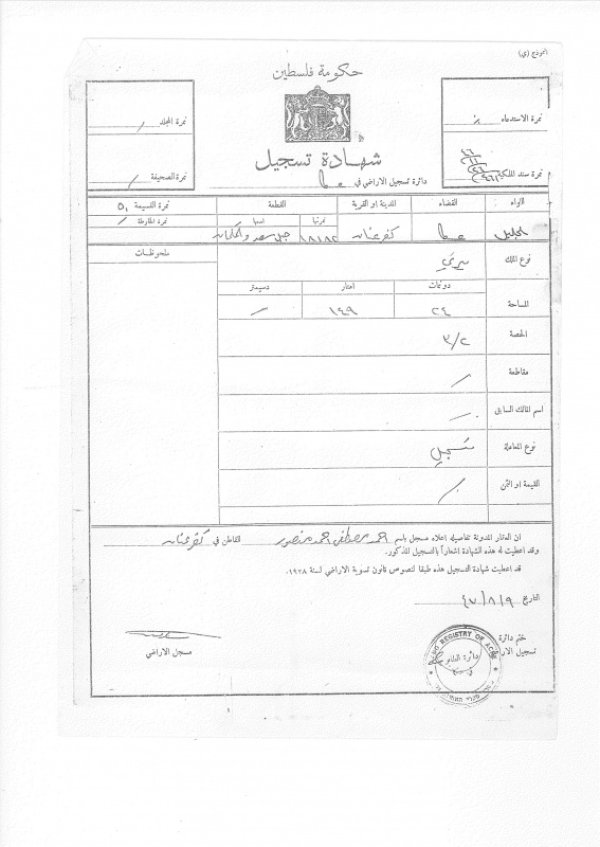 النموذج (ي)
حكومة فلسطين
نمرة الاستدعاء
نمرة المجلد /
نمرة سند الملكية
نمرة الصحيفة /
شهادة تسجيل
دائرة تسجيل الاراضي في عكا
اللواء
القضاء
المدينة او القرية
القطعة
نمرتها
اسمها
نمرة القسيمة ٥١
نمرة الخارطة /
الجليل
عكا
كفرعنان
١٨١٨٢
نوع الملك
ميري
ملحوظات
دونمات
امتار
دسيمتر
المساحة
٢٤
١٤٩
الحصة
٣/٢
مقاطعة
اسم المالك السابق
نوع المعاملة
تسجيل
القيمة او الثمن
ان العقار المدونة تفاصيله اعلاه مسجل باسم احمد مصطفى احمد منصور القاطن في كفرعنان
وقد اعطيت له هذه الشهادة اشعاراً بالتسجيل المذكور.
قد اعطيت شهادة التسجيل هذه طبقا لنصوص قانون تسوية الاراضي لسنة ١٩٢٨.
التاريخ ٤٧/٨/٩
ختم دائرة
تسجيل الار
مسجل الاراضي
LAND REGISTRY OF ACRE